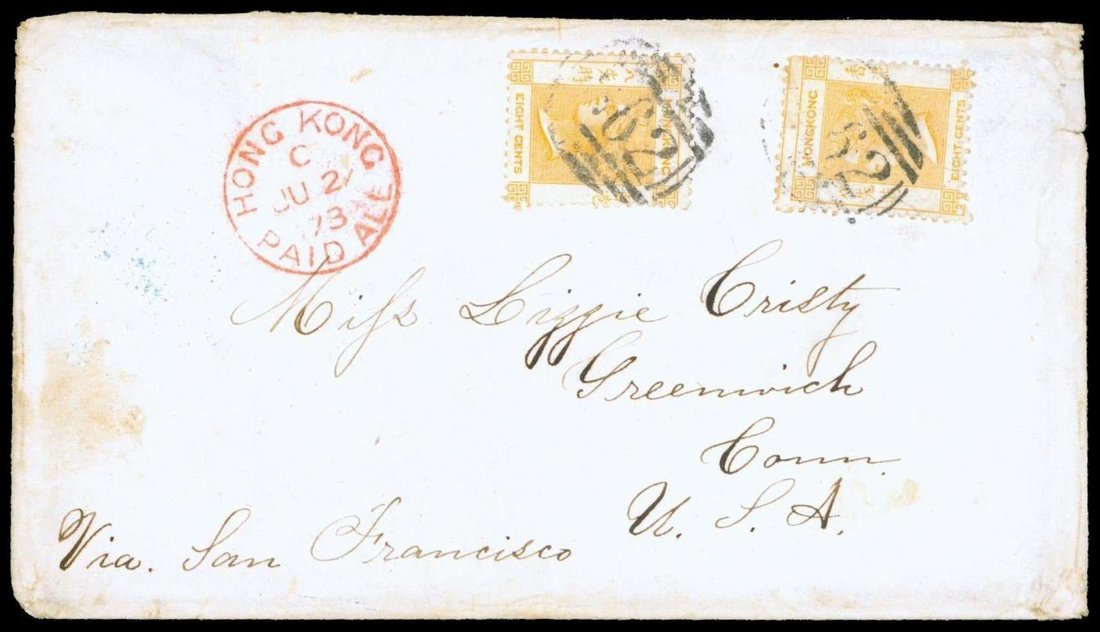 HONG KONG
C
JU 21
73
PAID ALL
EIGHT CENTS
62
HONGKONG
HONGKONG
62
EIGHT CENTS
Miss Lizzie Cristy
Greenwich
Conn.
U. S. A.
Via. San Francisco